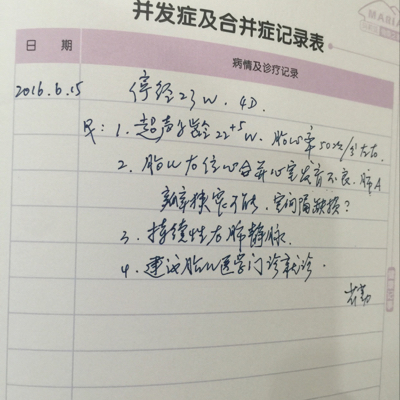 并发症及合并症记录表
MARIA
日 期
病情及诊疗记录
2016.6.15
停经23w.4D.
1.超声孕龄22+5w.胎心率50次/分左右
2.胎儿右位心合并心室发育不良.肺A
瓣窄狭窄不能.室间隔缺损?
3.持续性左肺静脉.
4.建议胎儿医学门诊就诊.